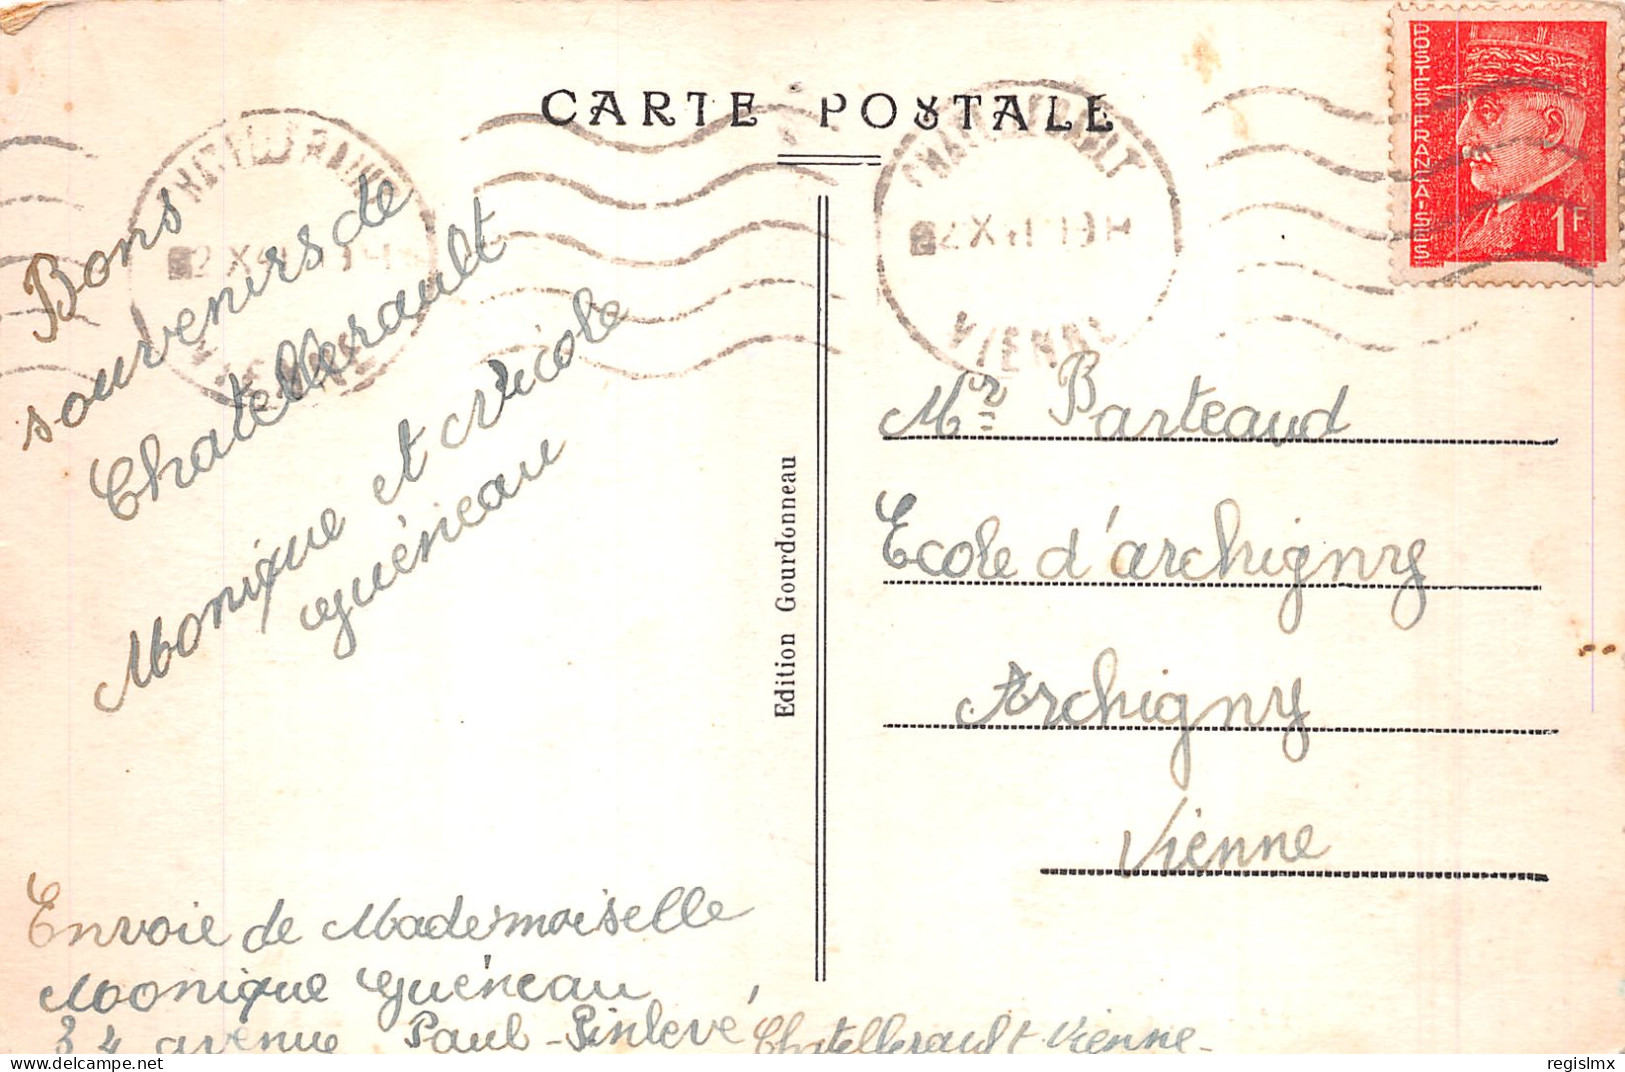 CARTE POSTALE
POSTES FRANÇAISES
1F
CHATELLERAULT
2 X 41
VIENNE
Bons
souvenirs de
Chatellerault
Monique et Nicole
Guéneau
Edition Gourdonneau
Mr Barteaud
Ecole d'archigny
Archigny
Vienne
Envoie de Mademoiselle
Monique Guéneau
34 avenue Paul-Pinlevé Chatellerault Vienne-
delcampe.net
regislmx